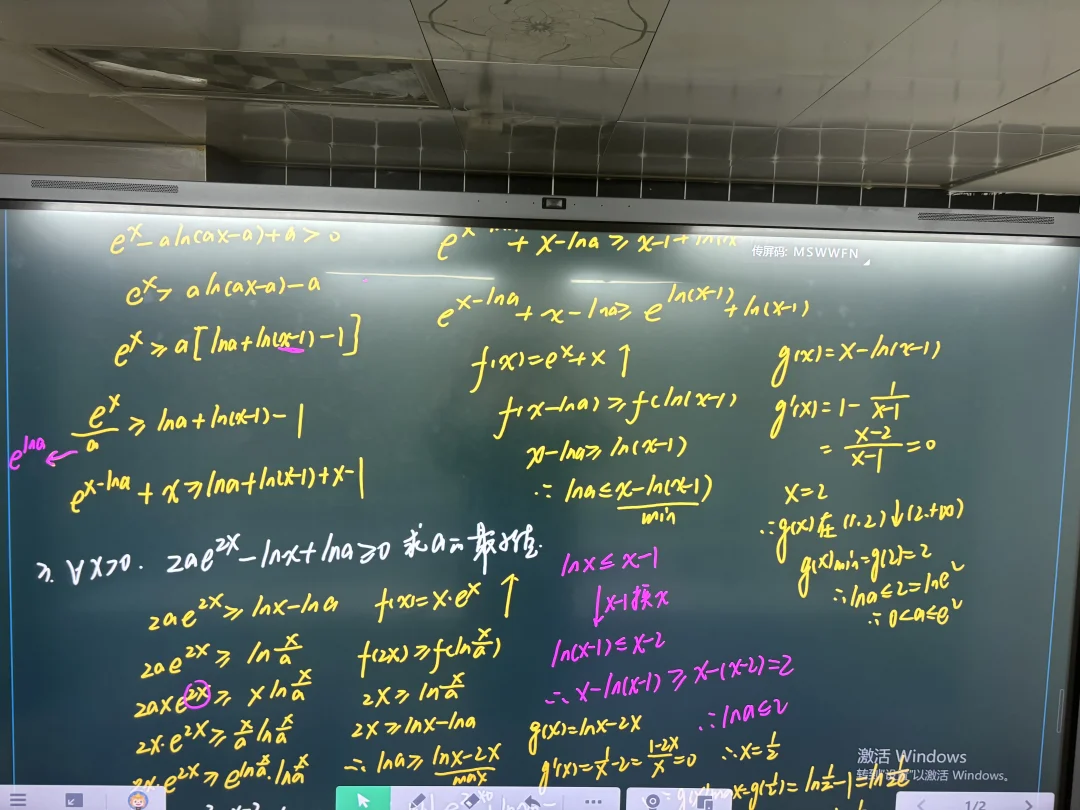 e^x - aln(ax-a)+a > 0
e^x > aln(ax-a)-a
e^x ≥ a[lna+ln(x-1)-1]
e^x/a ≥ lna+ln(x-1)-1
e^lna
e^(x-lna) + x ≥ lna+ln(x-1)+x-1
+ x-lna ≥ x-1+
传屏码: MSWWFN
e^(x-lna) + x-lna ≥ e^ln(x-1) + ln(x-1)
f(x)=e^x+x ↑
f(x-lna) ≥ f(ln(x-1))
x-lna ≥ ln(x-1)
∴ lna ≤ x-ln(x-1)
min
g(x)=x-ln(x-1)
g'(x)=1-1/(x-1)
=(x-2)/(x-1)=0
x=2
∴g(x)在(1.2)↓(2.+∞)
g(x)min=g(2)=2
∴lna≤2=lne^2
∴0<a≤e^2
∀x>0. 2ae^2x-lnx+lna≥0 求a的最小值.
2ae^2x ≥ lnx-lna
2ae^2x ≥ ln x/a
2axe^2x ≥ x ln x/a
2x·e^2x ≥ x/a ln x/a
2x·e^2x ≥ e^(ln x/a)·ln x/a
f(x)=x·e^x ↑
f(2x) ≥ f(ln x/a)
2x ≥ ln x/a
2x ≥ lnx-lna
∴ lna ≥ lnx-2x
max
lnx ≤ x-1
↓x-1换x
ln(x-1) ≤ x-2
∴ x-ln(x-1) ≥ x-(x-2)=2
∴lna≤2
g(x)=lnx-2x
g'(x)=1/x-2=(1-2x)/x=0
∴x=1/2
激活 Windows
转到"设置"以激活 Windows。
1/2